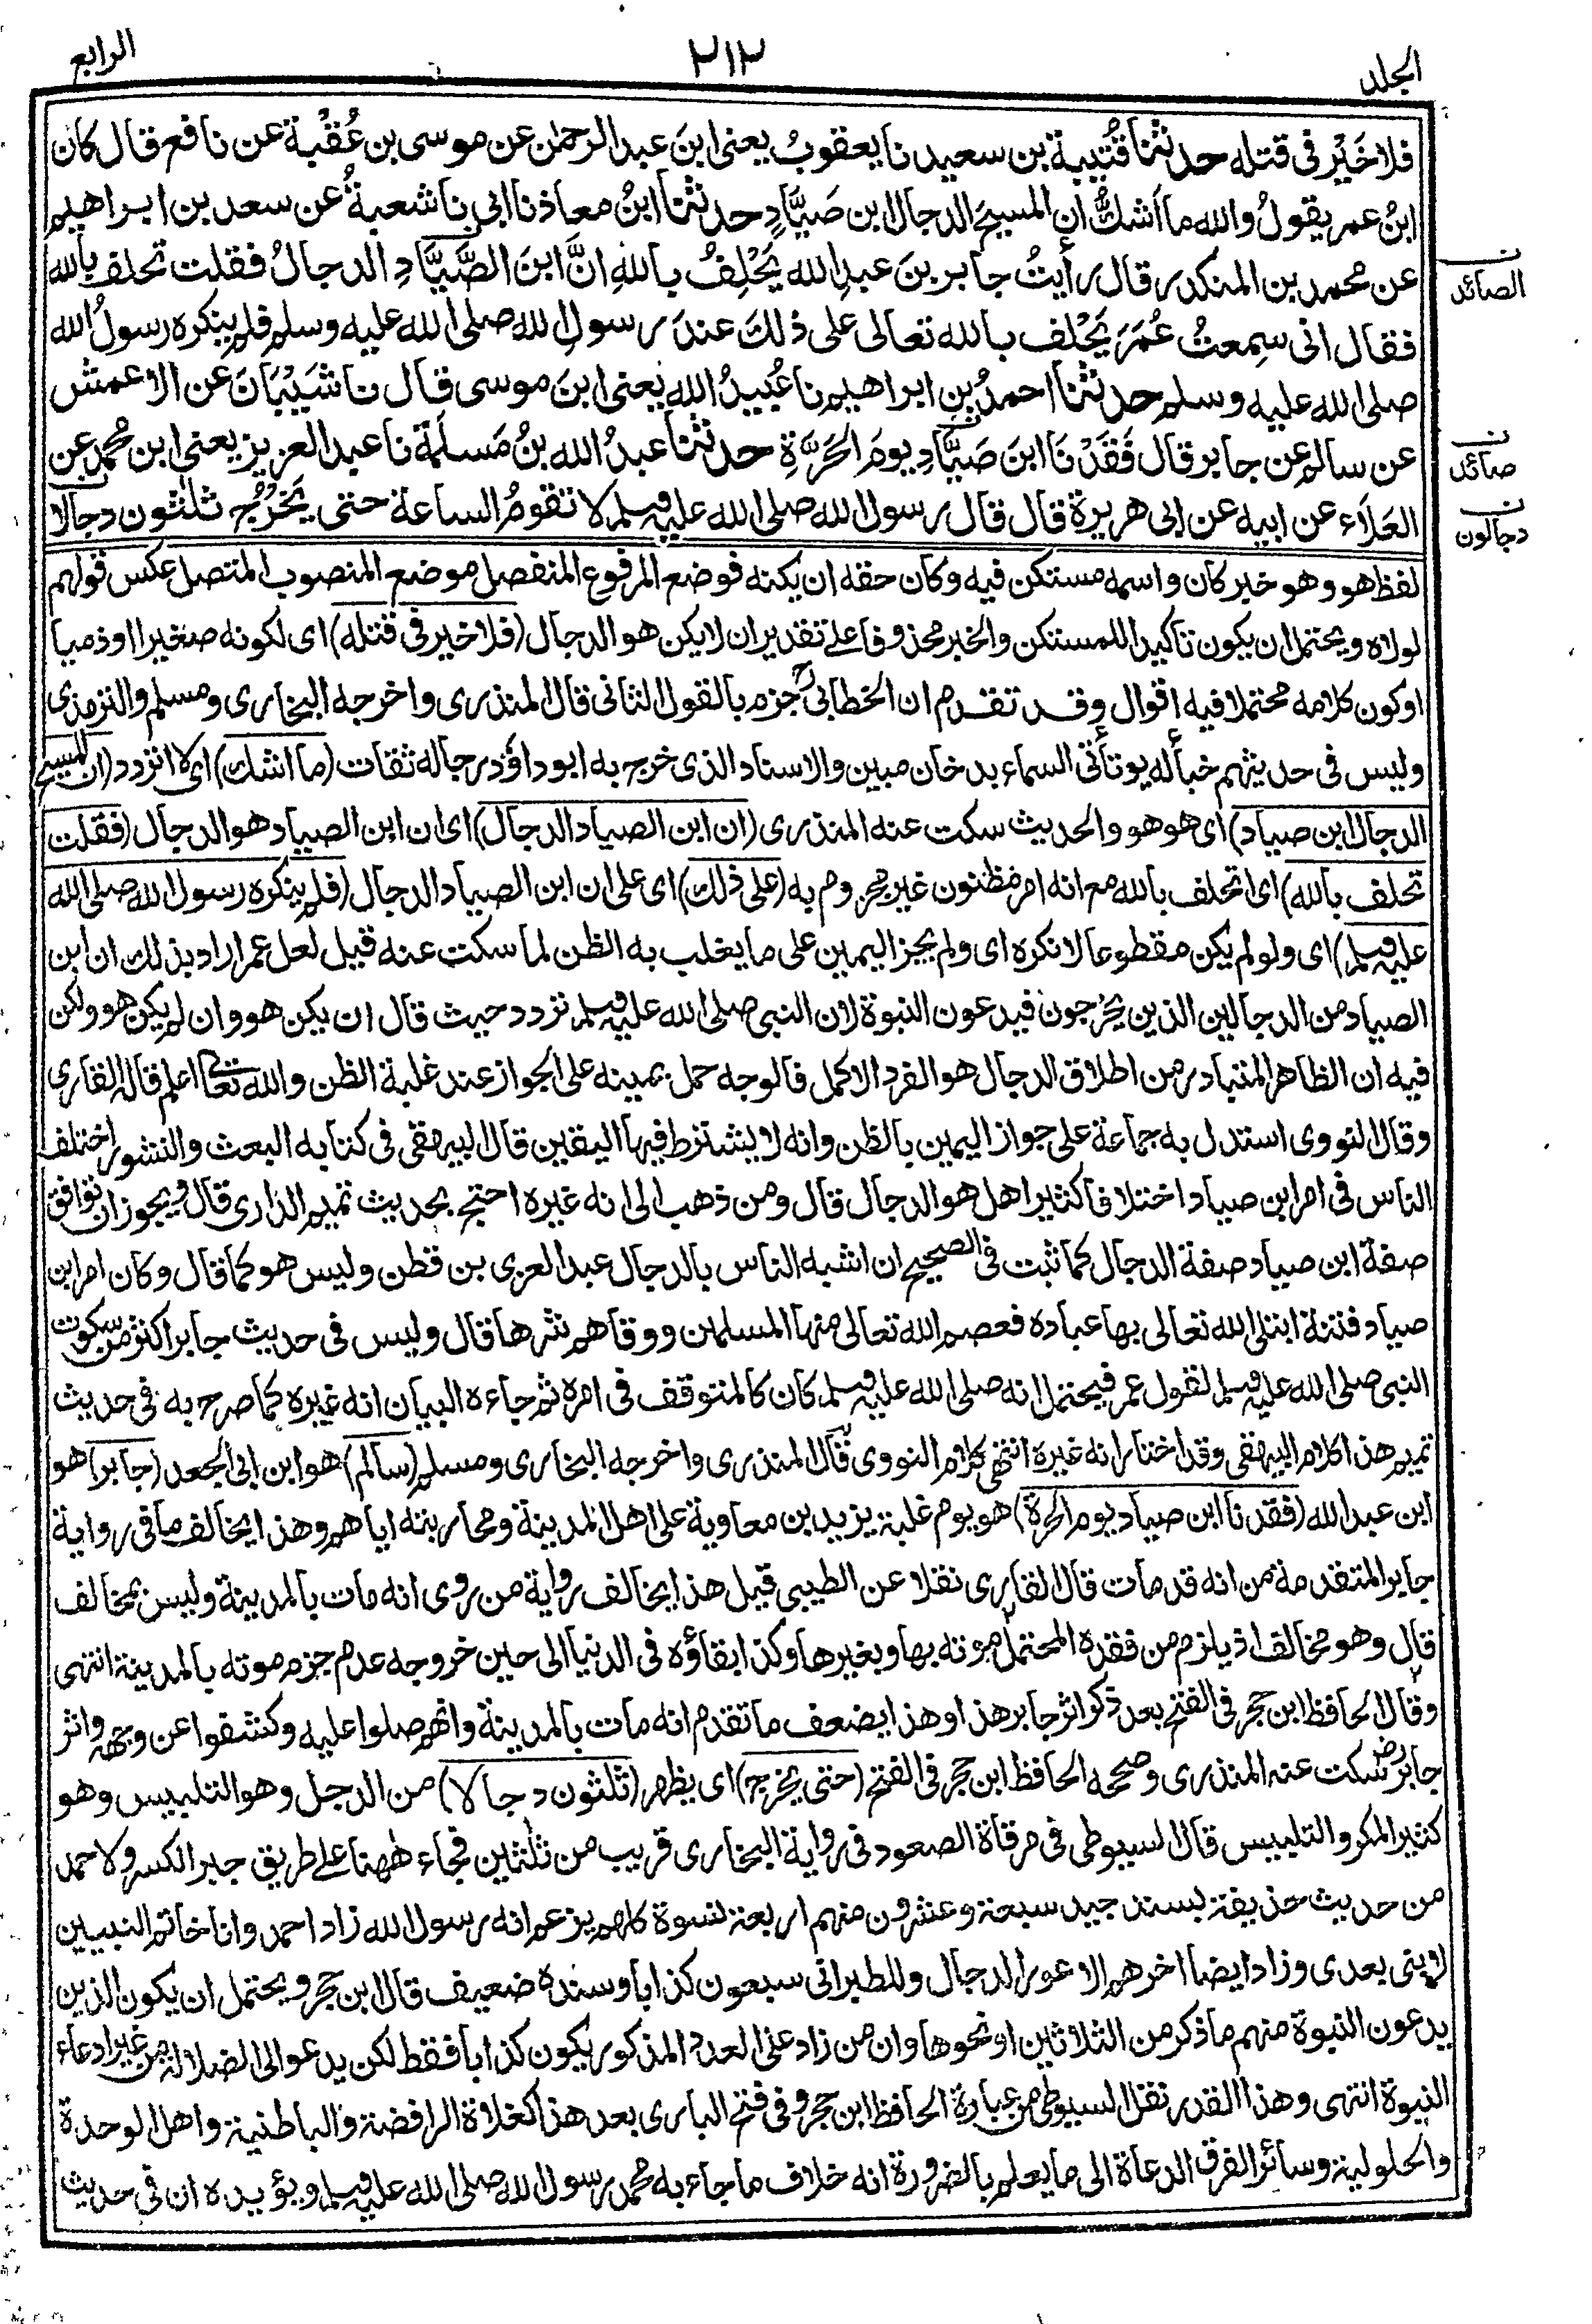 الجلد
٢١٢
الرابع
فلا خَيْرَ فى قتله حدثنا قُتَيبة بن سعيد نا يعقوبُ يعنى ابنَ عبد الرحمٰن عن موسى بن عُقْبة عن نافع قال كان
ابنُ عمر يقولُ والله ما أشكُّ ان المسيحَ الدجال ابن صَيَّادٍ حدثنا ابنُ معاذ نا ابى نا شعبةُ عن سعد بن ابراهيم
عن محمد بن المنكدر قال رأيتُ جابر بنَ عبدِ الله يَحْلِفُ باللهِ انَّ ابنَ الصَّيَّادِ الدجالُ فقلت تحلف بالله
الصائد
فقال انى سمعتُ عُمَرَ يَحْلف بالله تعالى على ذلكَ عندَ رسولِ الله صلى الله عليه وسلم فلم ينكره رسولُ الله
صلى الله عليه وسلم حدثنا احمدُ بن ابراهيم نا عُبيدُ الله يعنى ابنَ موسى قال نا شَيْبَانَ عن الاعمش
عن سالم عن جابر قال فَقَدْنَا ابنَ صَيَّادٍ يومَ الحَرَّةِ حدثنا عبدُ الله بنُ مَسلَمَةَ نا عبد العزيز يعنى ابن محمد عن
صائد
العَلَاء عن ابيه عن ابى هريرة قال قال رسول الله صلى الله عليه وسلم لا تقومُ الساعة حتى يَخْرُجَ ثلٰثون دجالا
دجالون
لفظ هو وهو خبر كان واسمه مستكن فيه وكان حقه ان يكنه فوضع المرفوع المنفصل موضع المنصوب المتصل عكس قولهم
لولاه ويحتمل ان يكون تاكيدا للمستكن والخبر محذوفا على تقدير ان لا يكن هو الدجال (فلا خير فى قتله) اى لكونه صغيرا او ذميا
او كون كلامه محتملا فيه اقوال وقد تقدم ان الخطابىؒ جزم بالقول الثانى قال المنذرى واخرجه البخارى ومسلم والترمذى
وليس فى حديثهم خبأ له يوم تأتى السماء بدخان مبين والاسناد الذى خرج به ابو داؤد رجاله ثقات (ما اشك) اى لا اتردد (ان المسيح
الدجال ابن صياد) اى هو هو والحديث سكت عنه المنذرى (ان ابن الصياد الدجال) اى ان ابن الصياد هو الدجال (فقلت
تحلف بالله) اى اتحلف بالله مع انه امر مظنون غير مجزوم به (على ذلك) اى على ان ابن الصياد الدجال (فلم ينكره رسول الله صلى الله
عليه وسلم) اى ولو لم يكن مقطوعا لانكره اى ولم يجز اليمين على ما يغلب به الظن لما سكت عنه قيل لعل عمر اراد بذلك ان ابن
الصياد من الدجالين الذين يخرجون فيدعون النبوة لان النبى صلى الله عليه وسلم تردد حيث قال ان يكن هو وان لم يكن هو ولكن
فيه ان الظاهر المتبادر من اطلاق الدجال هو الفرد الاكمل فالوجه حمل يمينه على الجواز عند غلبة الظن والله تعالى اعلم قاله القارى
وقال النووى استدل به جماعة على جواز اليمين بالظن وانه لا يشترط فيها اليقين قال البيهقى فى كتابه البعث والنشور اختلف
الناس فى امر ابن صياد اختلافا كثيرا هل هو الدجال قال ومن ذهب الى انه غيره احتج بحديث تميم الدارى قال ويجوز ان توافق
صفة ابن صياد صفة الدجال كما ثبت فى الصحيح ان اشبه الناس بالدجال عبد العزى بن قطن وليس هو كما قال وكان امر ابن
صياد فتنة ابتلى الله تعالى بها عباده فعصم الله تعالى منها المسلمين ووقاهم شرها قال وليس فى حديث جابر اكثر من سكوت
النبى صلى الله عليه وسلم لقول عمر فيحتمل انه صلى الله عليه وسلم كان كالمتوقف فى امره ثم جاءه البيان انه غيره كما صرح به فى حديث
تميم هذا كلام البيهقى وقد اختار انه غيره انتهى كلام النووى قال المنذرى واخرجه البخارى ومسلم (سالم) هو ابن ابى الجعد (جابر) هو
ابن عبد الله (فقدنا ابن صياد يوم الحرة) هو يوم غلبة يزيد بن معاوية على اهل المدينة ومحاربته اياهم وهذا يخالف ما فى رواية
جابر المتقدمة من انه قد مات قال القارى نقلا عن الطيبى قيل هذا يخالف رواية من روى انه مات بالمدينة وليس بمخالف
قال وهو مخالف اذ يلزم من فقده المحتمل موته بها وبغيرها وكذا بقاؤه فى الدنيا الى حين خروجه عدم جزم موته بالمدينة انتهى
وقال الحافظ ابن حجر فى الفتح بعد ذكر اثر جابر هذا وهذا يضعف ما تقدم انه مات بالمدينة وانهم صلوا عليه وكشفوا عن وجهه واثر
جابر رض سكت عنه المنذرى وصححه الحافظ ابن حجر فى الفتح (حتى يخرج) اى يظهر (ثلثون دجالا) من الدجل وهو التلبيس وهو
كثير المكر والتلبيس قال السيوطى فى مرقاة الصعود فى رواية البخارى قريب من ثلثين فجاء ههنا على طريق جبر الكسر ولاحمد
من حديث حذيفة بسند جيد سبعة وعشرون منهم اربعة نسوة كلهم يزعم انه رسول الله زاد احمد وانا خاتم النبيين
لا نبى بعدى وزاد ايضا اخرهم الاعور الدجال وللطبرانى سبعون كذابا وسنده ضعيف قال ابن حجر ويحتمل ان يكون الذين
يدعون النبوة منهم ما ذكر من الثلاثين او نحوها وان من زاد على العدد المذكور يكون كذابا فقط لكن يدعو الى الضلالة من غير ادعاء
النبوة انتهى وهذا القدر نقل السيوطى من عبارة الحافظ ابن حجر وفى فتح البارى بعد هذا كغلاة الرافضة والباطنية واهل الوحدة
والحلولية وسائر الفرق الدعاة الى ما يعلم بالضرورة انه خلاف ما جاء به محمد رسول الله صلى الله عليه وسلم ويؤيده ان فى حديث